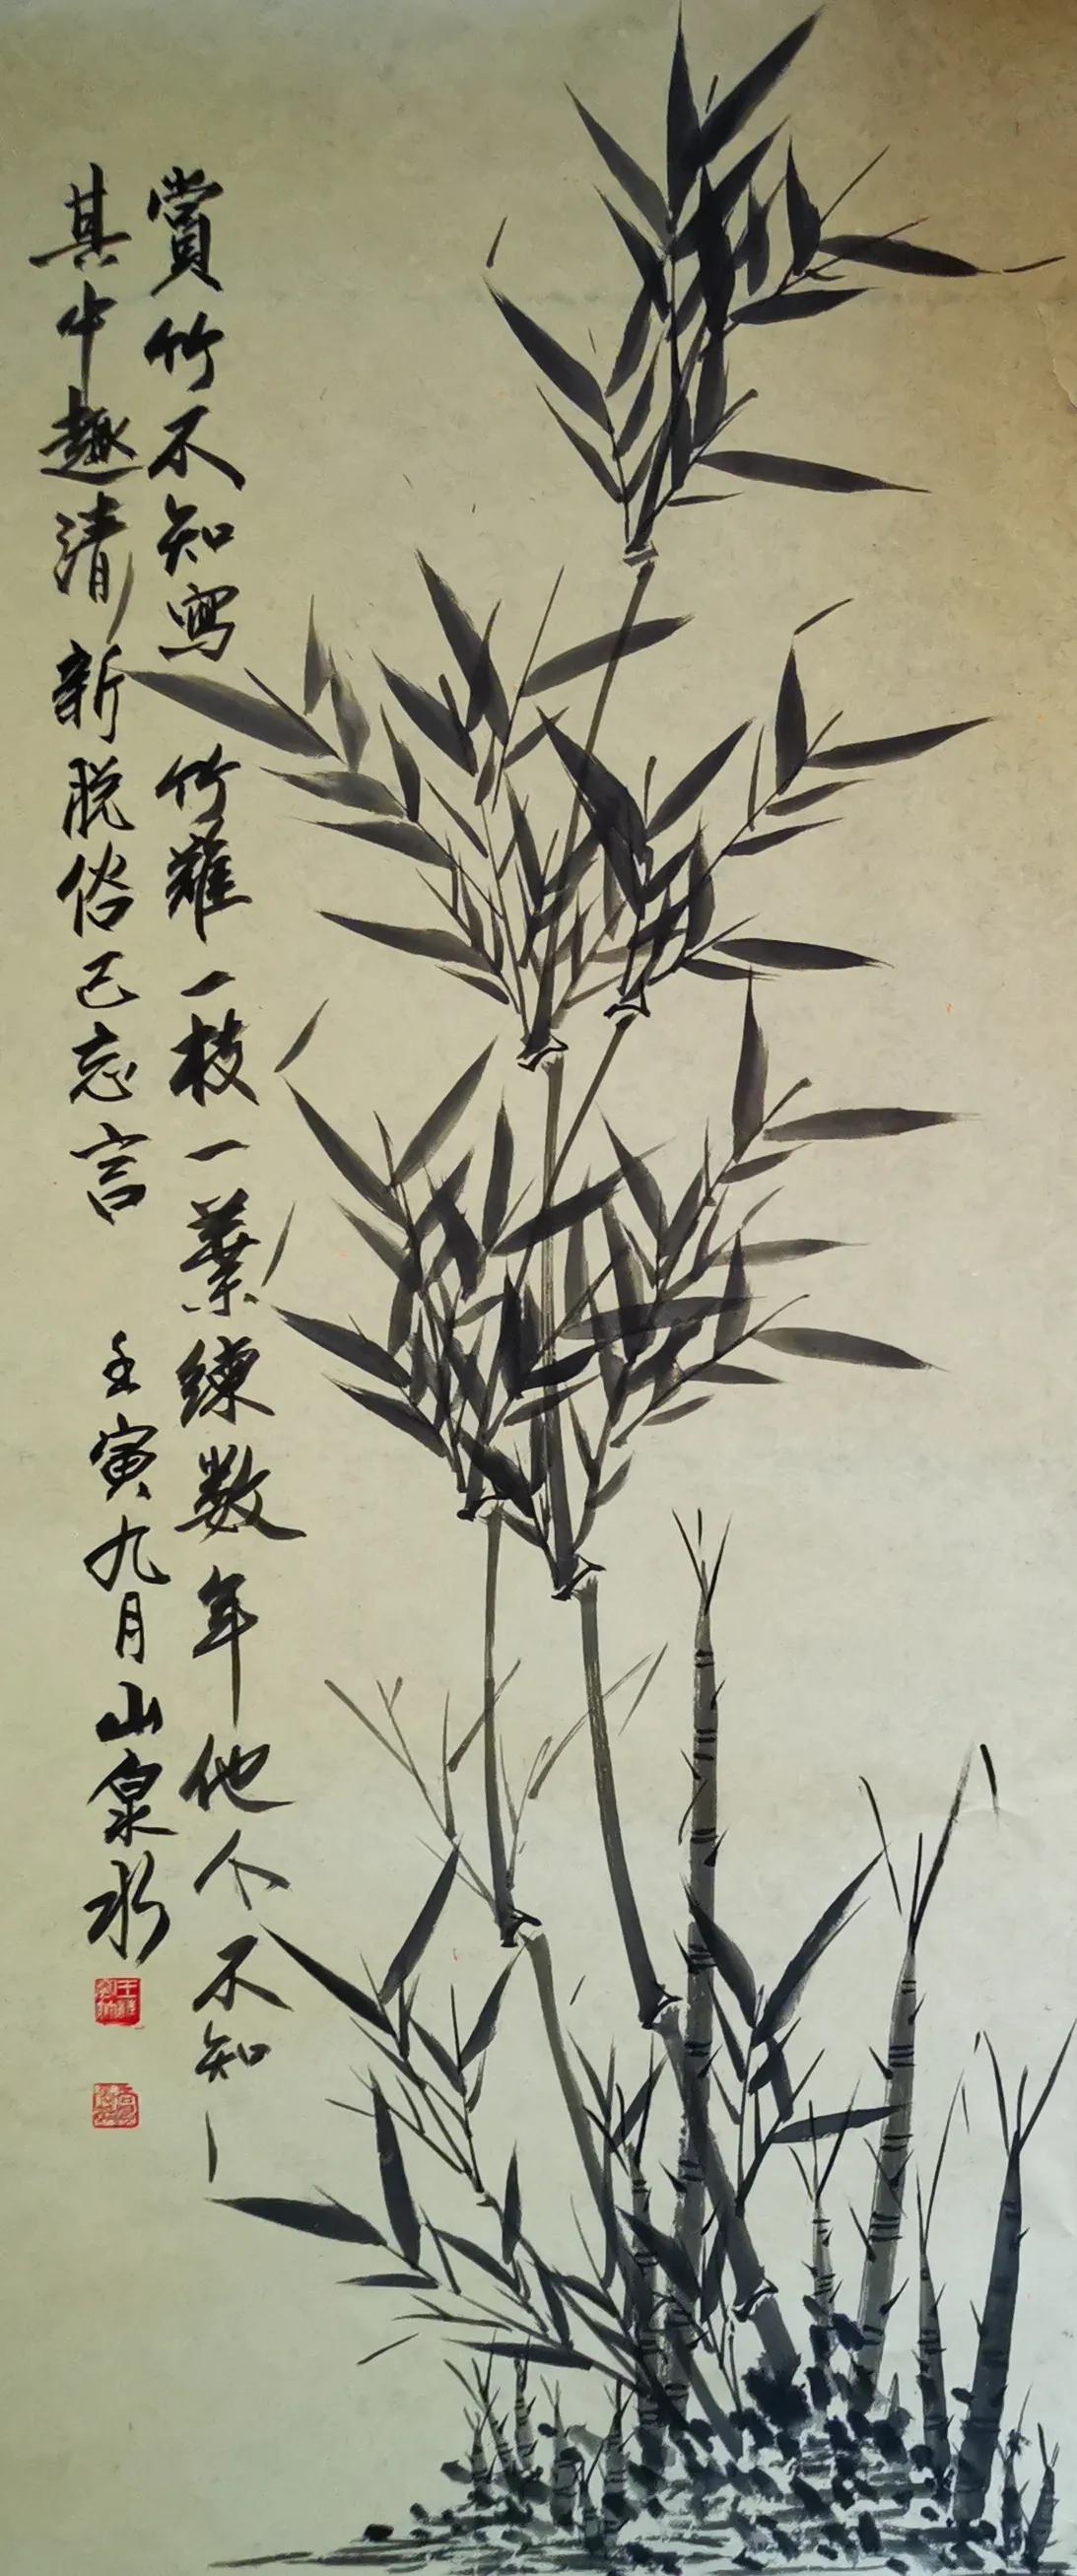 賞竹不知寫竹難一枝一葉練数年他人不知
其中趣清新脱俗已忘言 壬寅九月山泉水